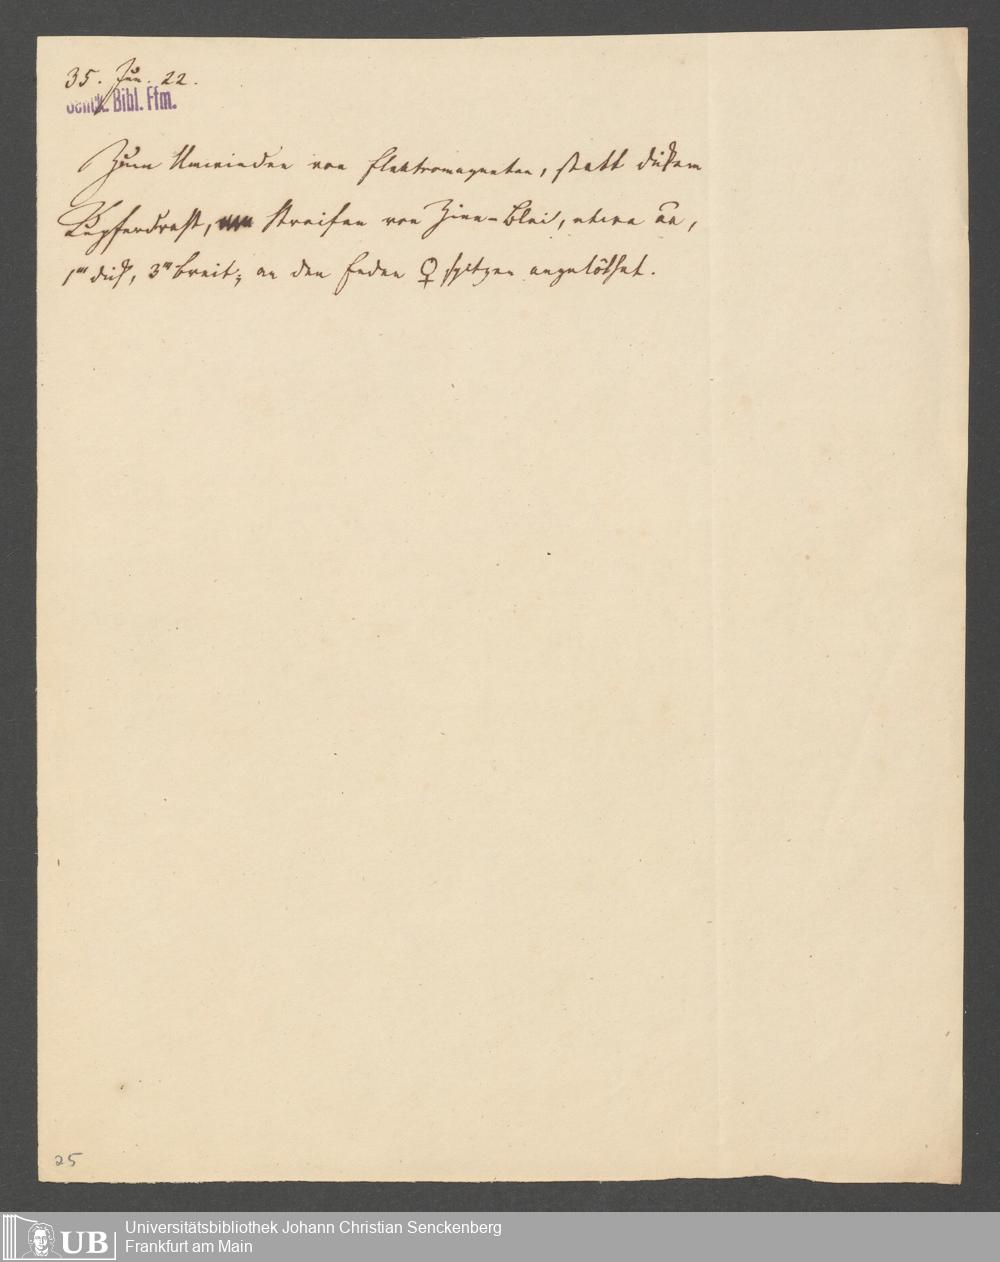 35. Jun. 22.
Senck. Bibl. Ffm.
Zum Umwinden von Elektromagneten, statt dickem
Kupferdraht, Streifen von Zinn-Blei, etwa āa,
1''' dick, 3''' breit; an den Enden ♀ spitzen angelöthet.
25
UB
Universitätsbibliothek Johann Christian Senckenberg
Frankfurt am Main